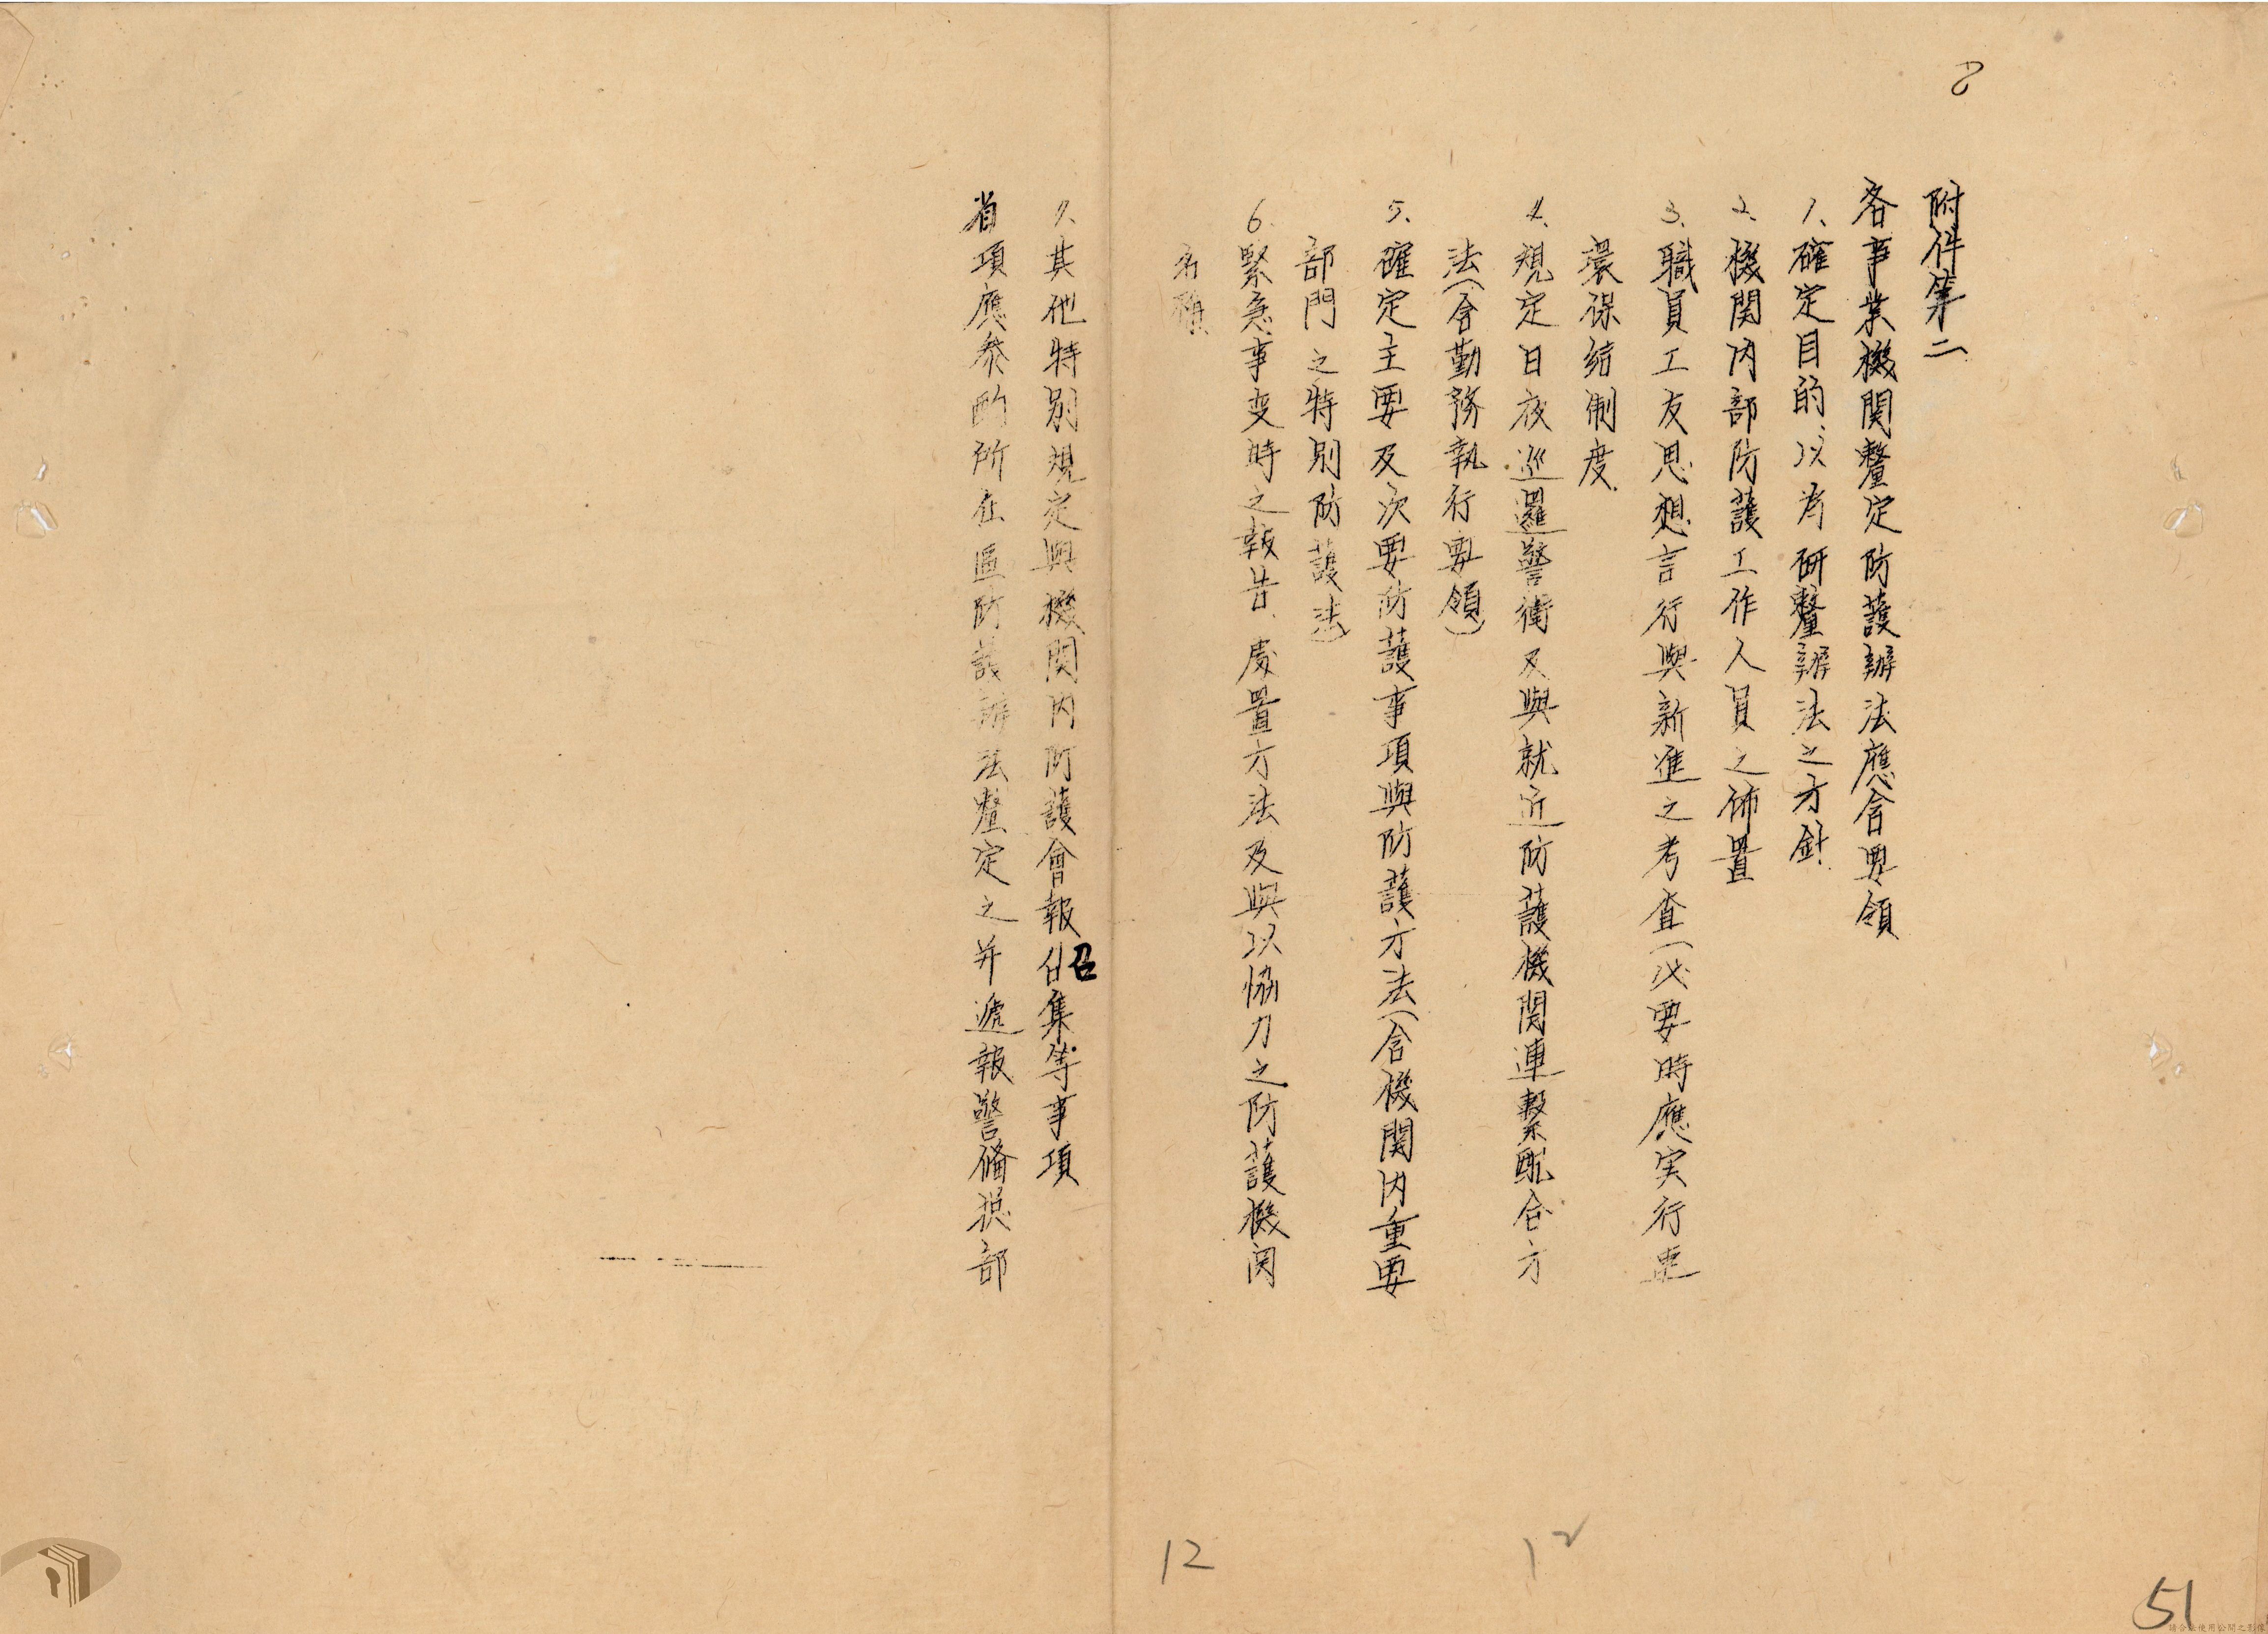 8
附件第二
各事業機関釐定防護辦法應含要領
1、確定目的、以為研釐辦法之方針
2、機関內部防護工作人員之佈置
3、職員工友思想言行與新進之考查(必要時應実行連
環保結制度.
4、規定日夜巡邏警衛及與就近防護機関連繫配合方
法(含勤務執行要領)
5、確定主要及次要防護事項與防護方法(含機関內重要
部門之特別防護法)
6、緊急事变時之報告、處置方法及與以協力之防護機関
名稱
7、其他特別規定與機関內防護會報召集等事項
項應參酌所在區防護辦法釐定之并遞報警備總部
12
12
51
請合法使用公開之影像